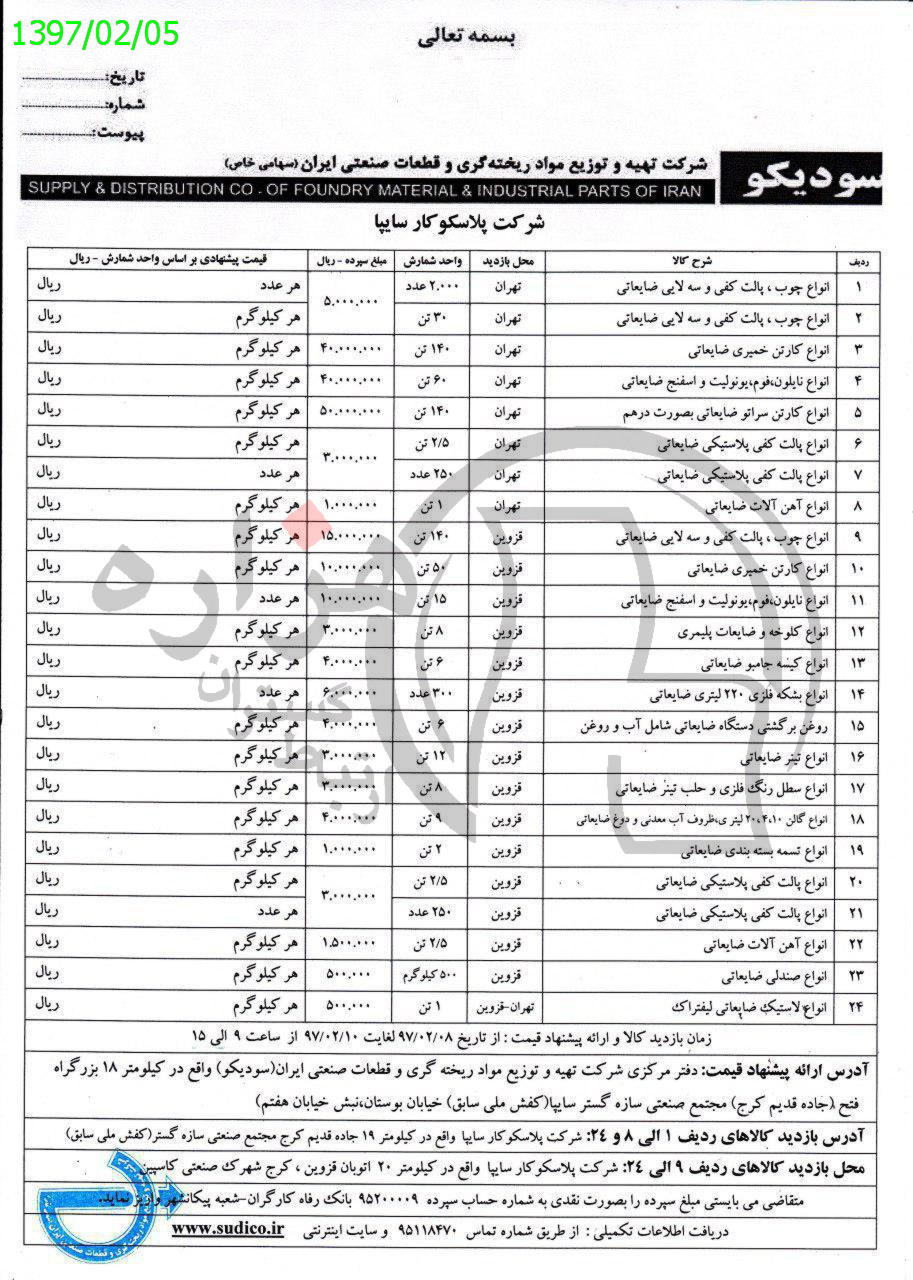 1397/02/05
بسمه تعالی
تاریخ:
شماره:
پیوست:
سودیکو
شرکت تهیه و توزیع مواد ریخته گری و قطعات صنعتی ایران (سهامی خاص)
SUPPLY & DISTRIBUTION CO . OF FOUNDRY MATERIAL & INDUSTRIAL PARTS OF IRAN
شرکت پلاسکوکار سایپا
ردیف شرح کالا محل بازدید واحد شمارش مبلغ سپرده - ریال قیمت پیشنهادی بر اساس واحد شمارش - ریال
۱ انواع چوب ، پالت کفی و سه لایی ضایعاتی تهران ۲.۰۰۰ عدد ۵.۰۰۰.۰۰۰ هر عدد ریال
۲ انواع چوب ، پالت کفی و سه لایی ضایعاتی تهران ۳۰ تن هر کیلوگرم ریال
۳ انواع کارتن خمیری ضایعاتی تهران ۱۴۰ تن ۴۰.۰۰۰.۰۰۰ هر کیلوگرم ریال
۴ انواع نایلون،فوم،یونولیت و اسفنج ضایعاتی تهران ۶۰ تن ۴۰.۰۰۰.۰۰۰ هر کیلوگرم ریال
۵ انواع کارتن سراتو ضایعاتی بصورت درهم تهران ۱۴۰ تن ۵۰.۰۰۰.۰۰۰ هر کیلوگرم ریال
۶ انواع پالت کفی پلاستیکی ضایعاتی تهران ۲/۵ تن ۳.۰۰۰.۰۰۰ هر کیلوگرم ریال
۷ انواع پالت کفی پلاستیکی ضایعاتی تهران ۲۵۰ عدد هر عدد ریال
۸ انواع آهن آلات ضایعاتی تهران ۱ تن ۱.۰۰۰.۰۰۰ هر کیلوگرم ریال
۹ انواع چوب ، پالت کفی و سه لایی ضایعاتی قزوین ۱۴۰ تن ۱۵.۰۰۰.۰۰۰ هر کیلوگرم ریال
۱۰ انواع کارتن خمیری ضایعاتی قزوین ۵۰ تن ۱۰.۰۰۰.۰۰۰ هر کیلوگرم ریال
۱۱ انواع نایلون،فوم،یونولیت و اسفنج ضایعاتی قزوین ۱۵ تن ۱۰.۰۰۰.۰۰۰ هر عدد ریال
۱۲ انواع کلوخه و ضایعات پلیمری قزوین ۸ تن ۳.۰۰۰.۰۰۰ هر کیلوگرم ریال
۱۳ انواع کیسه جامبو ضایعاتی قزوین ۶ تن ۴.۰۰۰.۰۰۰ هر کیلوگرم ریال
۱۴ انواع بشکه فلزی ۲۲۰ لیتری ضایعاتی قزوین ۳۰۰ عدد ۶.۰۰۰.۰۰۰ هر عدد ریال
۱۵ روغن برگشتی دستگاه ضایعاتی شامل آب و روغن قزوین ۶ تن ۴.۰۰۰.۰۰۰ هر کیلوگرم ریال
۱۶ انواع تینر ضایعاتی قزوین ۱۲ تن ۳.۰۰۰.۰۰۰ هر کیلوگرم ریال
۱۷ انواع سطل رنگ فلزی و حلب تینر ضایعاتی قزوین ۸ تن ۳.۰۰۰.۰۰۰ هر کیلوگرم ریال
۱۸ انواع گالن ۲۰،۴،۱۰ لیتری،ظروف آب معدنی و دوغ ضایعاتی قزوین ۹ تن ۴.۰۰۰.۰۰۰ هر کیلوگرم ریال
۱۹ انواع تسمه بسته بندی ضایعاتی قزوین ۲ تن ۱.۰۰۰.۰۰۰ هر کیلوگرم ریال
۲۰ انواع پالت کفی پلاستیکی ضایعاتی قزوین ۲/۵ تن ۳.۰۰۰.۰۰۰ هر کیلوگرم ریال
۲۱ انواع پالت کفی پلاستیکی ضایعاتی قزوین ۲۵۰ عدد هر عدد ریال
۲۲ انواع آهن آلات ضایعاتی قزوین ۲/۵ تن ۱.۵۰۰.۰۰۰ هر کیلوگرم ریال
۲۳ انواع صندلی ضایعاتی قزوین ۵۰۰ کیلوگرم ۵۰۰.۰۰۰ هر کیلوگرم ریال
۲۴ انواع لاستیک ضایعاتی لیفتراک تهران-قزوین ۱ تن ۵۰۰.۰۰۰ هر کیلوگرم ریال
زمان بازدید کالا و ارائه پیشنهاد قیمت : از تاریخ ۹۷/۰۲/۰۸ لغایت ۹۷/۰۲/۱۰ از ساعت ۹ الی ۱۵
آدرس ارائه پیشنهاد قیمت: دفتر مرکزی شرکت تهیه و توزیع مواد ریخته گری و قطعات صنعتی ایران(سودیکو) واقع در کیلومتر ۱۸ بزرگراه
فتح (جاده قدیم کرج) مجتمع صنعتی سازه گستر سایپا(کفش ملی سابق) خیابان بوستان،نبش خیابان هفتم)
آدرس بازدید کالاهای ردیف ۱ الی ۸ و ۲۴: شرکت پلاسکوکار سایپا واقع در کیلومتر ۱۹ جاده قدیم کرج مجتمع صنعتی سازه گستر(کفش ملی سابق)
محل بازدید کالاهای ردیف ۹ الی ۲۴: شرکت پلاسکوکار سایپا واقع در کیلومتر ۲۰ اتوبان قزوین ، کرج شهرک صنعتی کاسپین
متقاضی می بایستی مبلغ سپرده را بصورت نقدی به شماره حساب سپرده ۹۵۲۰۰۰۰۹ بانک رفاه کارگران-شعبه پیکانشهر واریز نماید.
دریافت اطلاعات تکمیلی : از طریق شماره تماس ۹۵۱۱۸۴۷۰ و سایت اینترنتی www.sudico.ir
هزاره